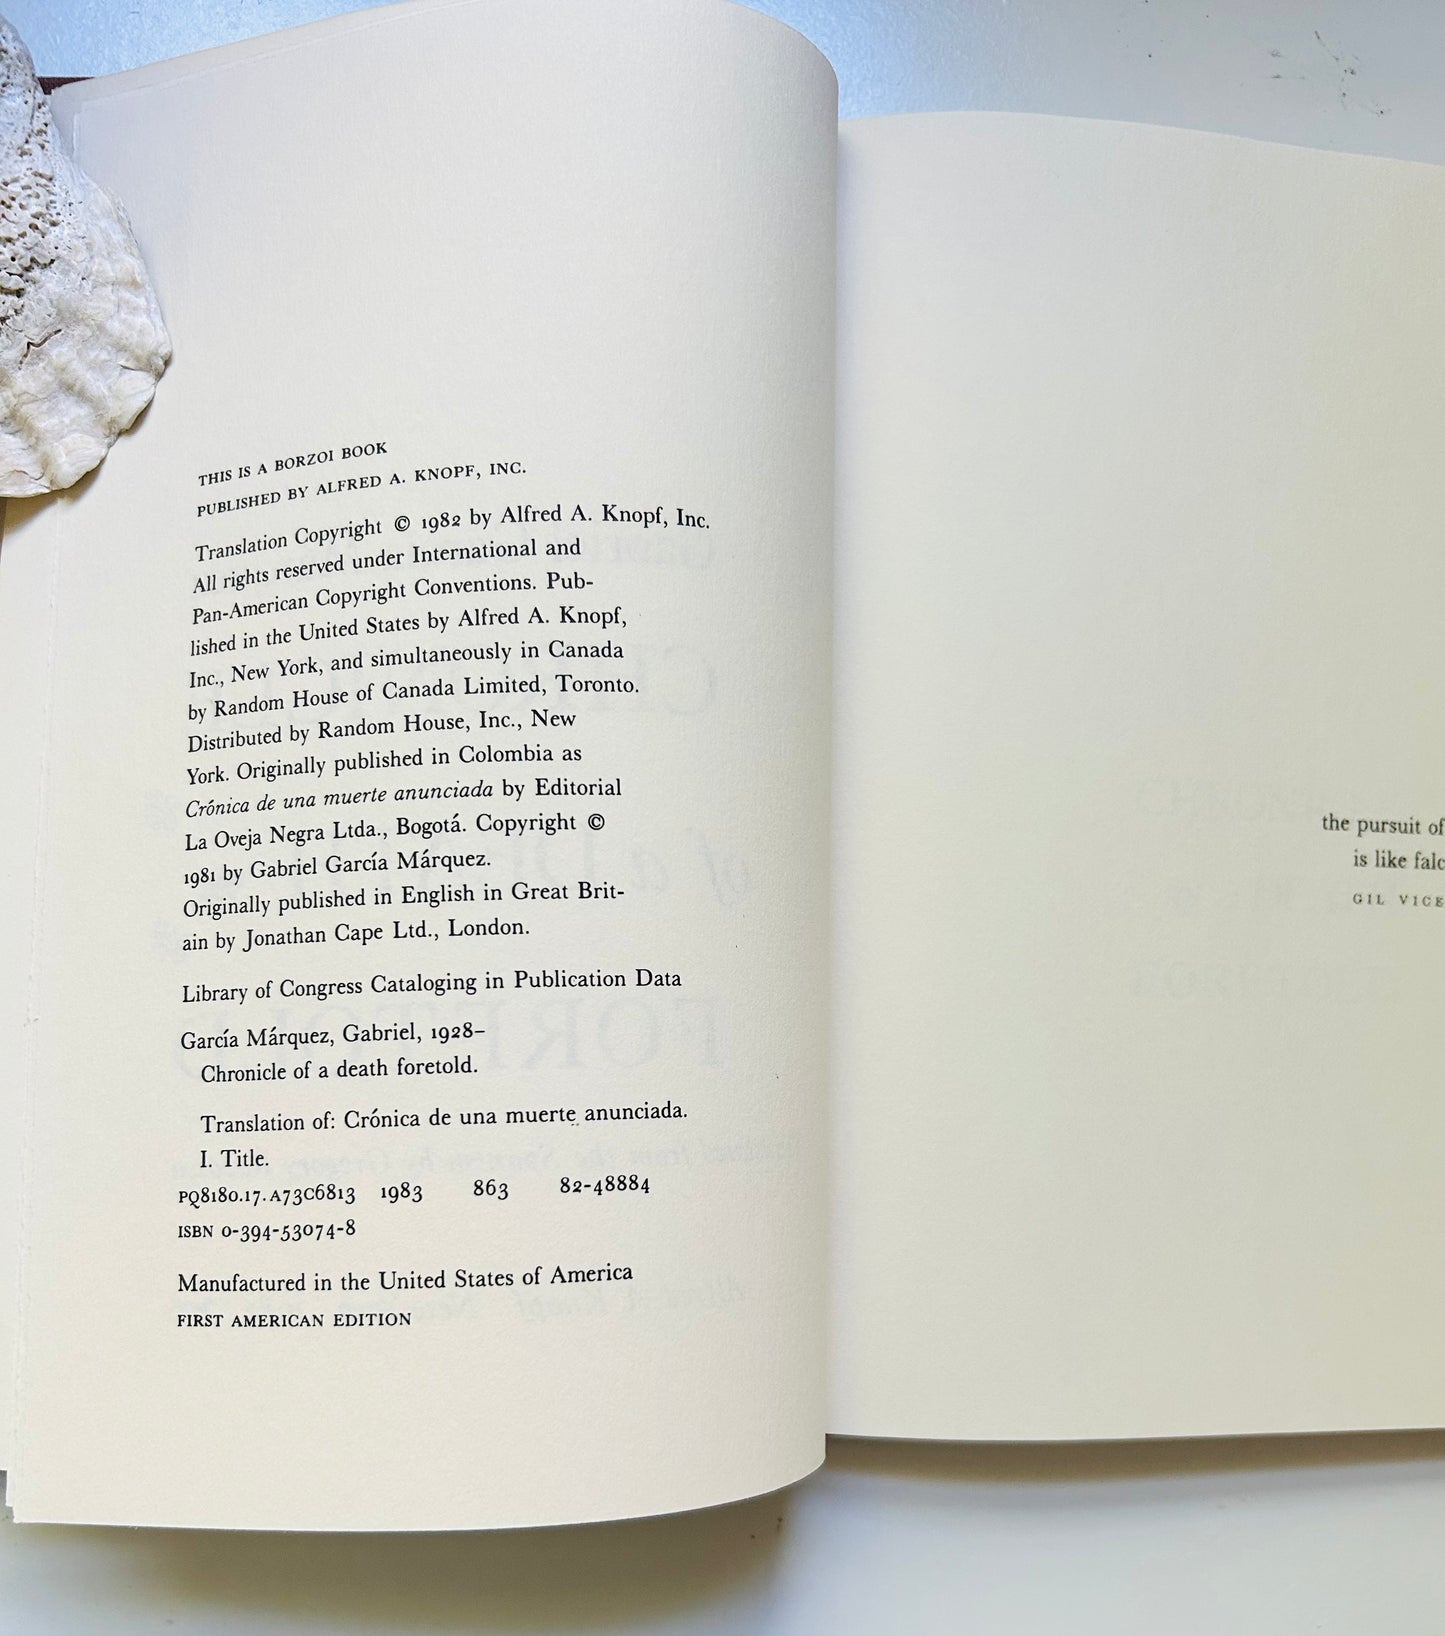 THIS IS A BORZOI BOOK
PUBLISHED BY ALFRED A. KNOPF, INC.
Translation Copyright © 1982 by Alfred A. Knopf, Inc.
All rights reserved under International and
Pan-American Copyright Conventions. Pub-
lished in the United States by Alfred A. Knopf,
Inc., New York, and simultaneously in Canada
by Random House of Canada Limited, Toronto.
Distributed by Random House, Inc., New
York. Originally published in Colombia as
Crónica de una muerte anunciada by Editorial
La Oveja Negra Ltda., Bogotá. Copyright ©
1981 by Gabriel García Márquez.
Originally published in English in Great Brit-
ain by Jonathan Cape Ltd., London.
Library of Congress Cataloging in Publication Data
García Márquez, Gabriel, 1928–
Chronicle of a death foretold.
Translation of: Crónica de una muerte anunciada.
I. Title.
PQ8180.17.A73C6813 1983 863 82-48884
ISBN 0-394-53074-8
Manufactured in the United States of America
FIRST AMERICAN EDITION
the pursuit of
is like falc
GIL VICE